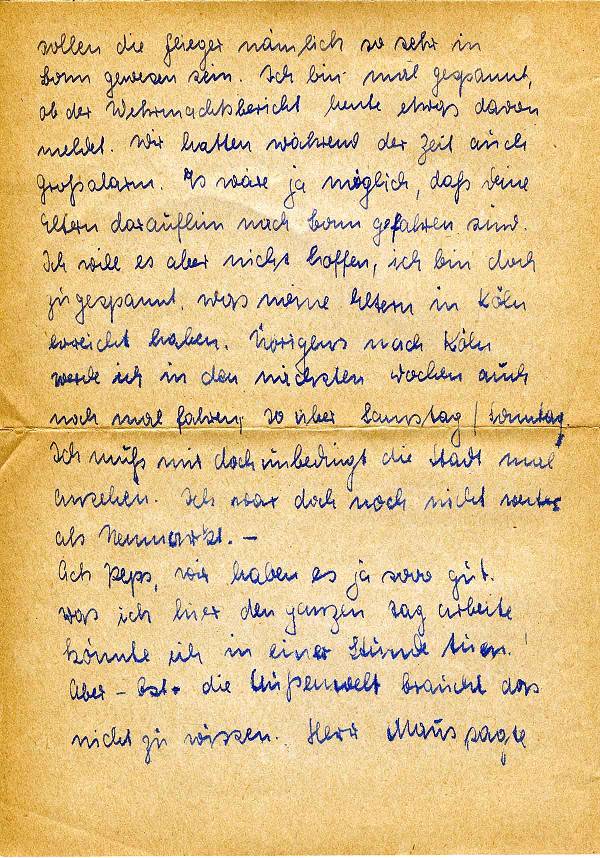 sollen die Flieger nämlich so sehr in
Bonn gewesen sein. Ich bin mal gespannt,
ob der Wehrmachtsbericht heute etwas davon
meldet. Wir hatten während der Zeit auch
Großalarm. Es wäre ja möglich, daß Deine
Eltern daraufhin nach Bonn gefahren sind.
Ich will es aber nicht hoffen, ich bin doch
zu gespannt, was meine Eltern in Köln
erreicht haben. Übrigens nach Köln
werde ich in den nächsten Wochen auch
noch mal fahren, so über Samstag / Sonntag.
Ich muß mir doch unbedingt die Stadt mal
ansehen. Ich war doch noch nicht weiter
als Neumarkt. –
Ach Peps, wir haben es ja sooo gut.
Was ich hier den ganzen Tag arbeite
könnte ich in einer Stunde tuen!
Aber – bst. die Außenwelt braucht das
nicht zu wissen. Herr Maus sagte